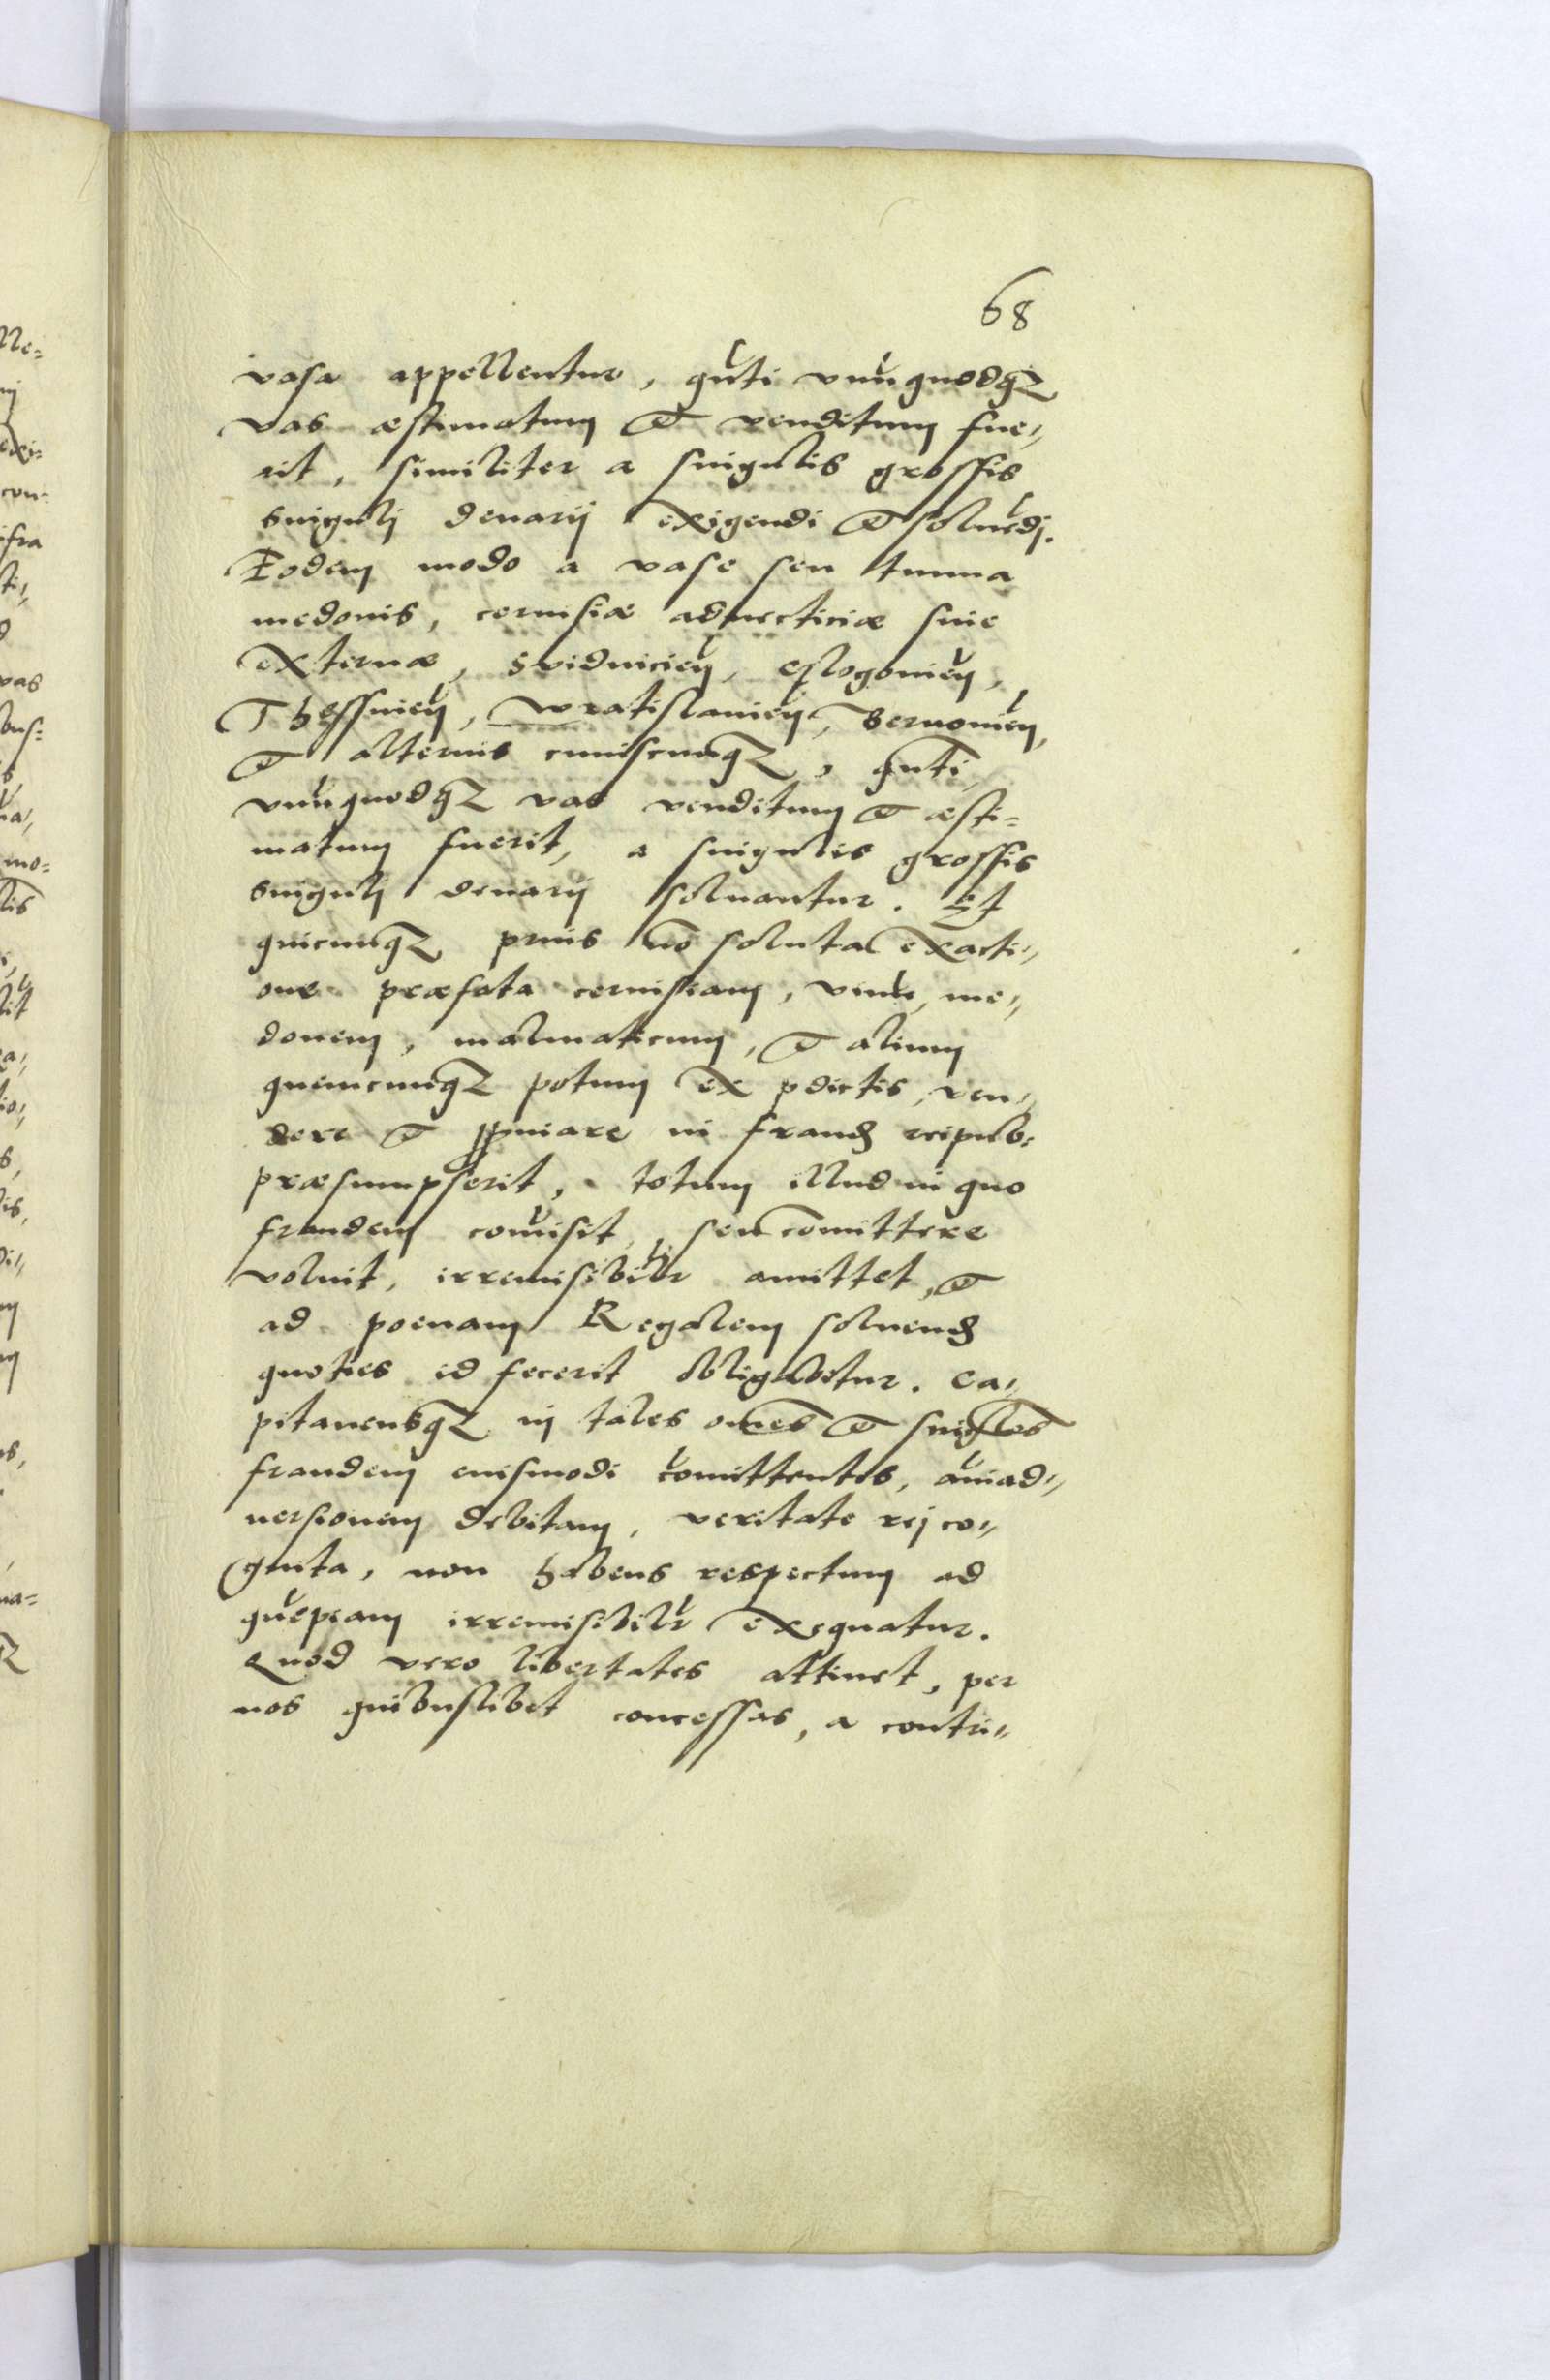 68
vasa appellentur, quāti vnūquodq₃
vas æstimatum & venditum fue„
rit, similiter a singulis grossis
singulj denarij exigendi & soluēdj.
Eodem modo a vase seu tunna
medonis, ceruisiæ aduecticiæ siue
externæ, Svidniciēn, Glogoniēn,
Thessniēn, Wratislauiēn, Bernouiēn,
& alterius cuiuscunq₃, quāti
vnūquodq₃ vas venditum & æsti=
matum fuerit, a singulis grossis
singulj denarij soluantur. Et
quicunq₃ prius nō soluta exacti„
one præfata ceruisiam, vinū, me„
donem, malmaticum, & alium
quemcunq₃ potum ex pdictis, ven„
dere & ppinare in fraudē reipub:
præsumpserit, totum illud in quo
fraudem cōmisit, seu cōmittere
voluit, irremisibilr amittet, &
ad poenam Regalem soluendā
quoties id fecerit obligabitur. Ca„
pitaneusq₃ in tales omēs & singlos
fraudem eiusmodi cōmittentes, aīmad„
uersionem debitam, veritate rej co„
gnita, non habens respectum ad
quēpiam irremisibilr exequatur.
Quod vero libertates attinet, per
nos quibuslibet concessas, a contri„